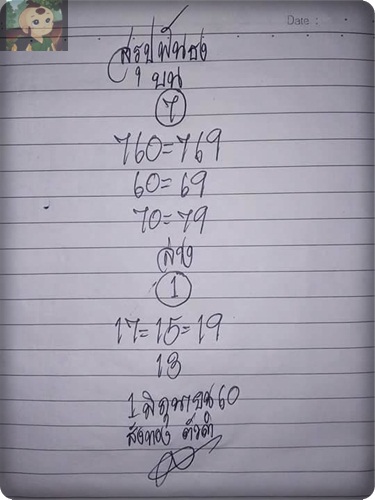 Date :
สรุปฟันธง
บน
7
760=769
60=69
70=79
ล่าง
1
17=15=19
13
1 มิถุนายน 60
สังทอง ตัวดำ